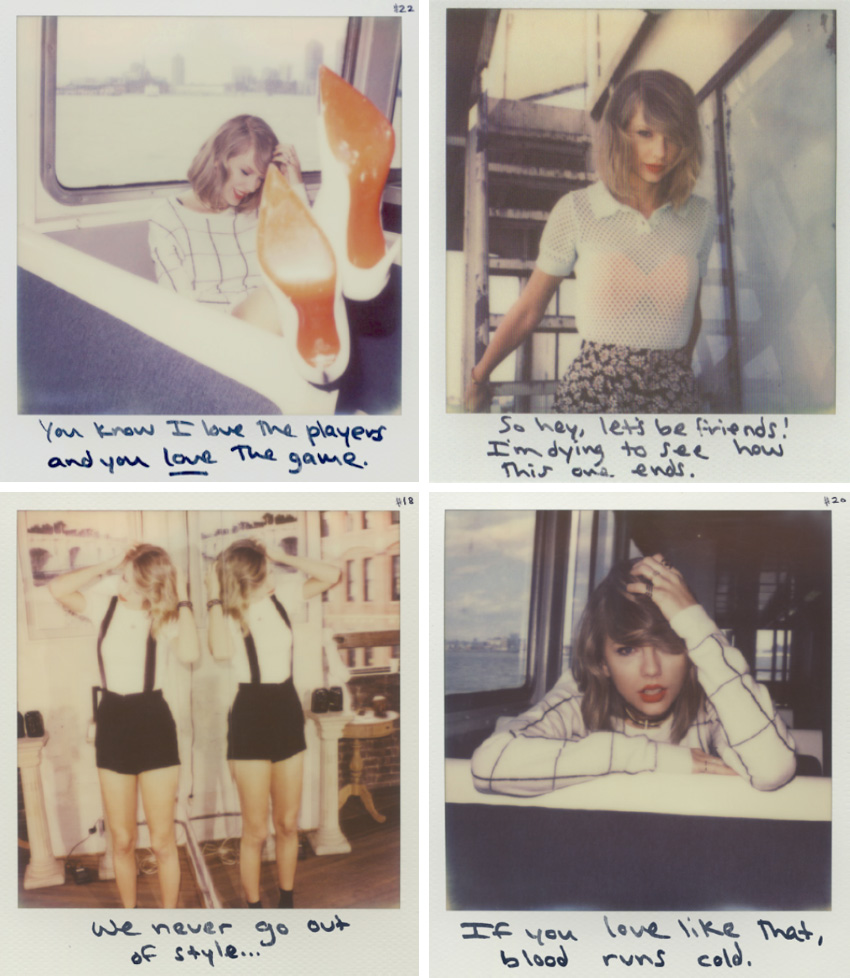 #22
You know I love the players
and you love the game.
So hey, let's be friends!
I'm dying to see how
this one ends.
#18
We never go out
of style...
#20
If you love like that,
blood runs cold.